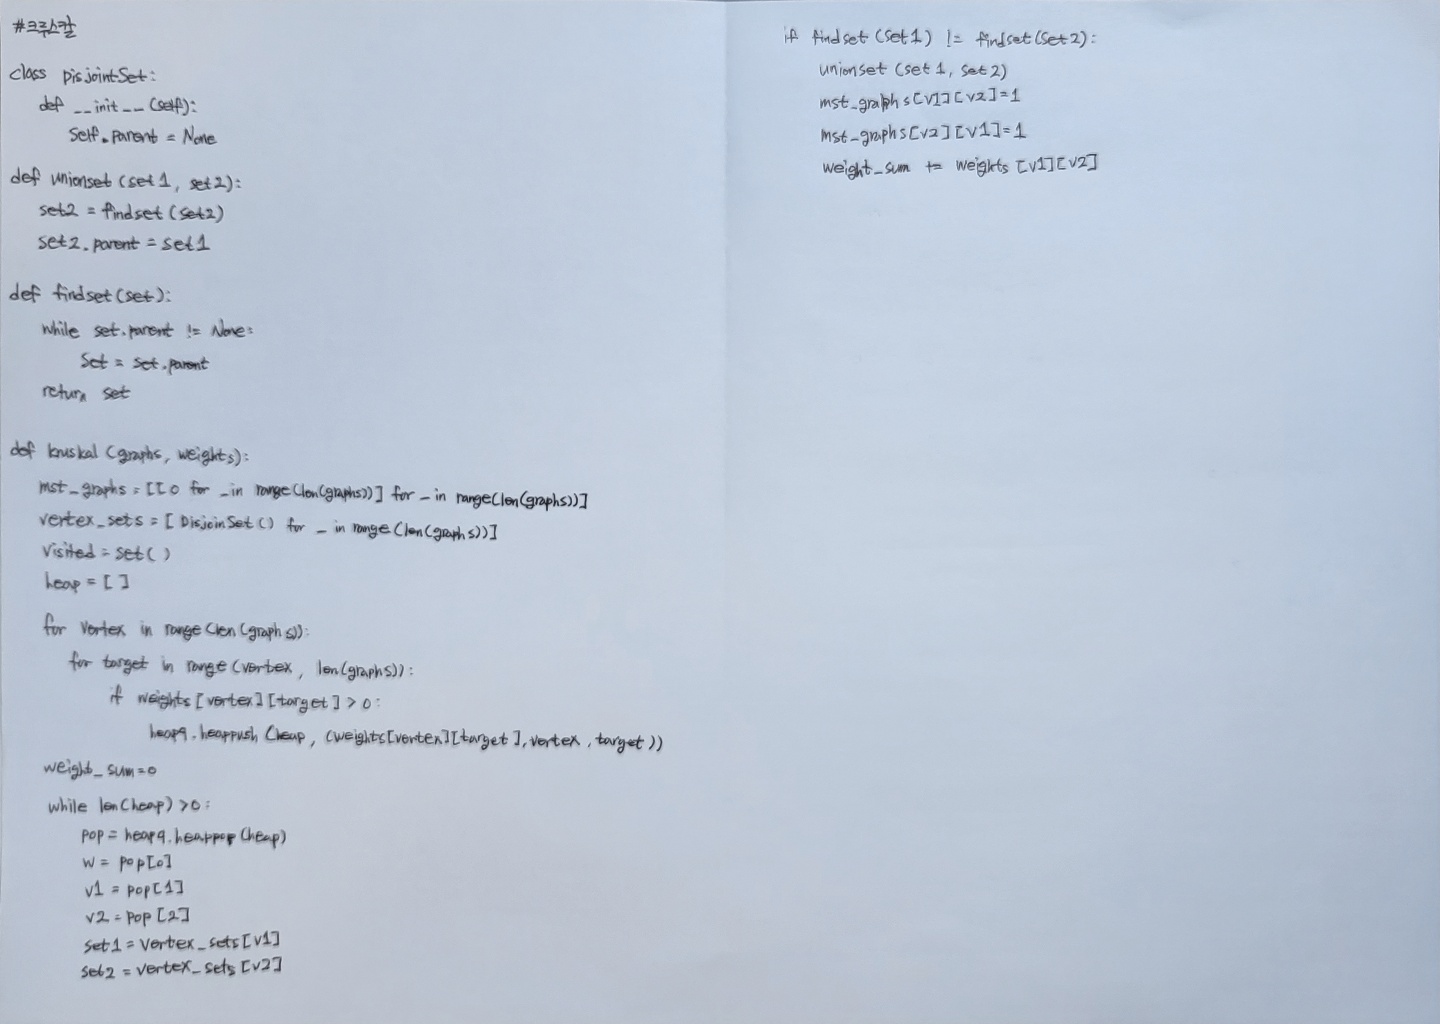 #크루스칼
class DisjointSet:
def __init__(self):
self.parent = None
def unionset(set1, set2):
set2 = findset(set2)
set2.parent = set1
def findset(set):
while set.parent != None:
set = set.parent
return set
def kruskal(graphs, weights):
mst_graphs = [[0 for _ in range(len(graphs))] for _ in range(len(graphs))]
vertex_sets = [DisjoinSet() for _ in range(len(graphs))]
visited = set()
heap = []
for vertex in range(len(graphs)):
for target in range(vertex, len(graphs)):
if weights[vertex][target] > 0:
heapq.heappush(heap, (weights[vertex][target], vertex, target))
weight_sum = 0
while len(heap) > 0:
pop = heapq.heappop(heap)
w = pop[0]
v1 = pop[1]
v2 = pop[2]
set1 = vertex_sets[v1]
set2 = vertex_sets[v2]
if findset(set1) != findset(set2):
unionset(set1, set2)
mst_graphs[v1][v2]=1
mst_graphs[v2][v1]=1
weight_sum += weights[v1][v2]